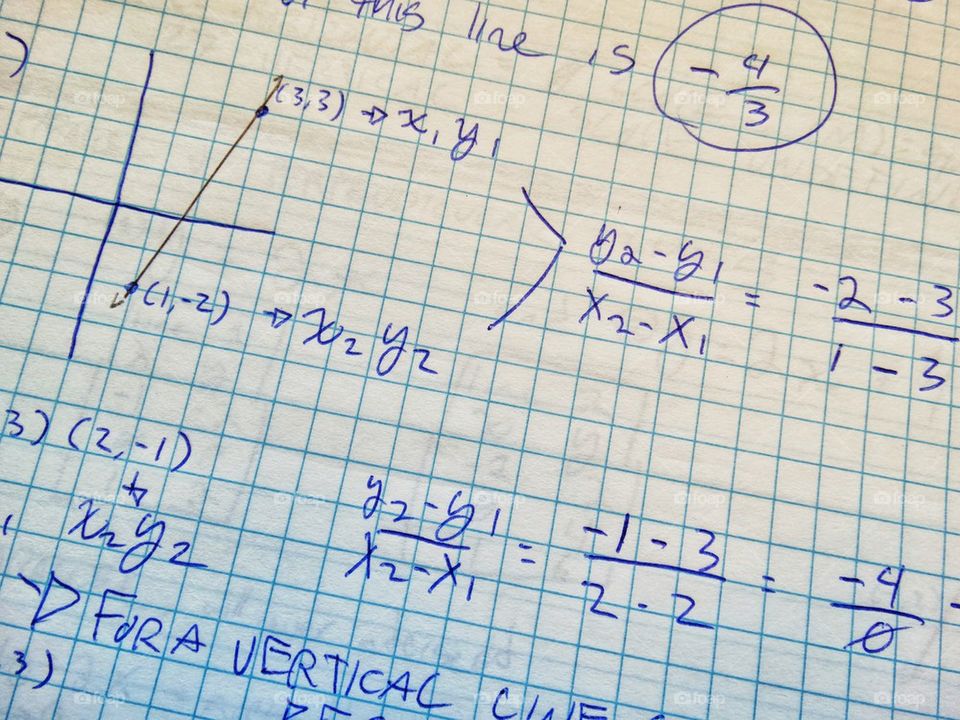 this line is - 4/3
)
(3,3) → x₁ y₁
(1,-2) → x₂ y₂
y₂ - y₁ / x₂ - x₁ = -2 - 3 / 1 - 3
3) (2,-1)
x₂ y₂
y₂ - y₁ / x₂ - x₁ = -1 - 3 / 2 - 2 = -4 / 0
FOR A VERTICAL LINE
3)
foap